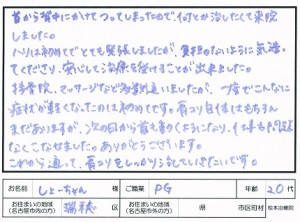 首から背中にかけてつってしまったので、何とか治したくて来院
しました。
ハリは初めてでとても緊張しましたが、負担のないように気遣っ
てくださり、安心して治療を受けることが出来ました。
接骨院、マッサージなど何割通いましたが、一度でこんなに
症状が軽くなったのは初めてです。肩コリ自体はもちろん
まだありますが、次の日から首も動くようになり、仕事も問題
なくこなせました。ありがとうございます。
これから通って、肩コリをしっかり治していきたいです。
お名前 しょーちゃん 様 ご職業 PG 年齢 20代
お住まいの地域(名古屋市内の方) 瑞穂 区 お住まいの地域(名古屋市外の方) 市区町村 松本治療院